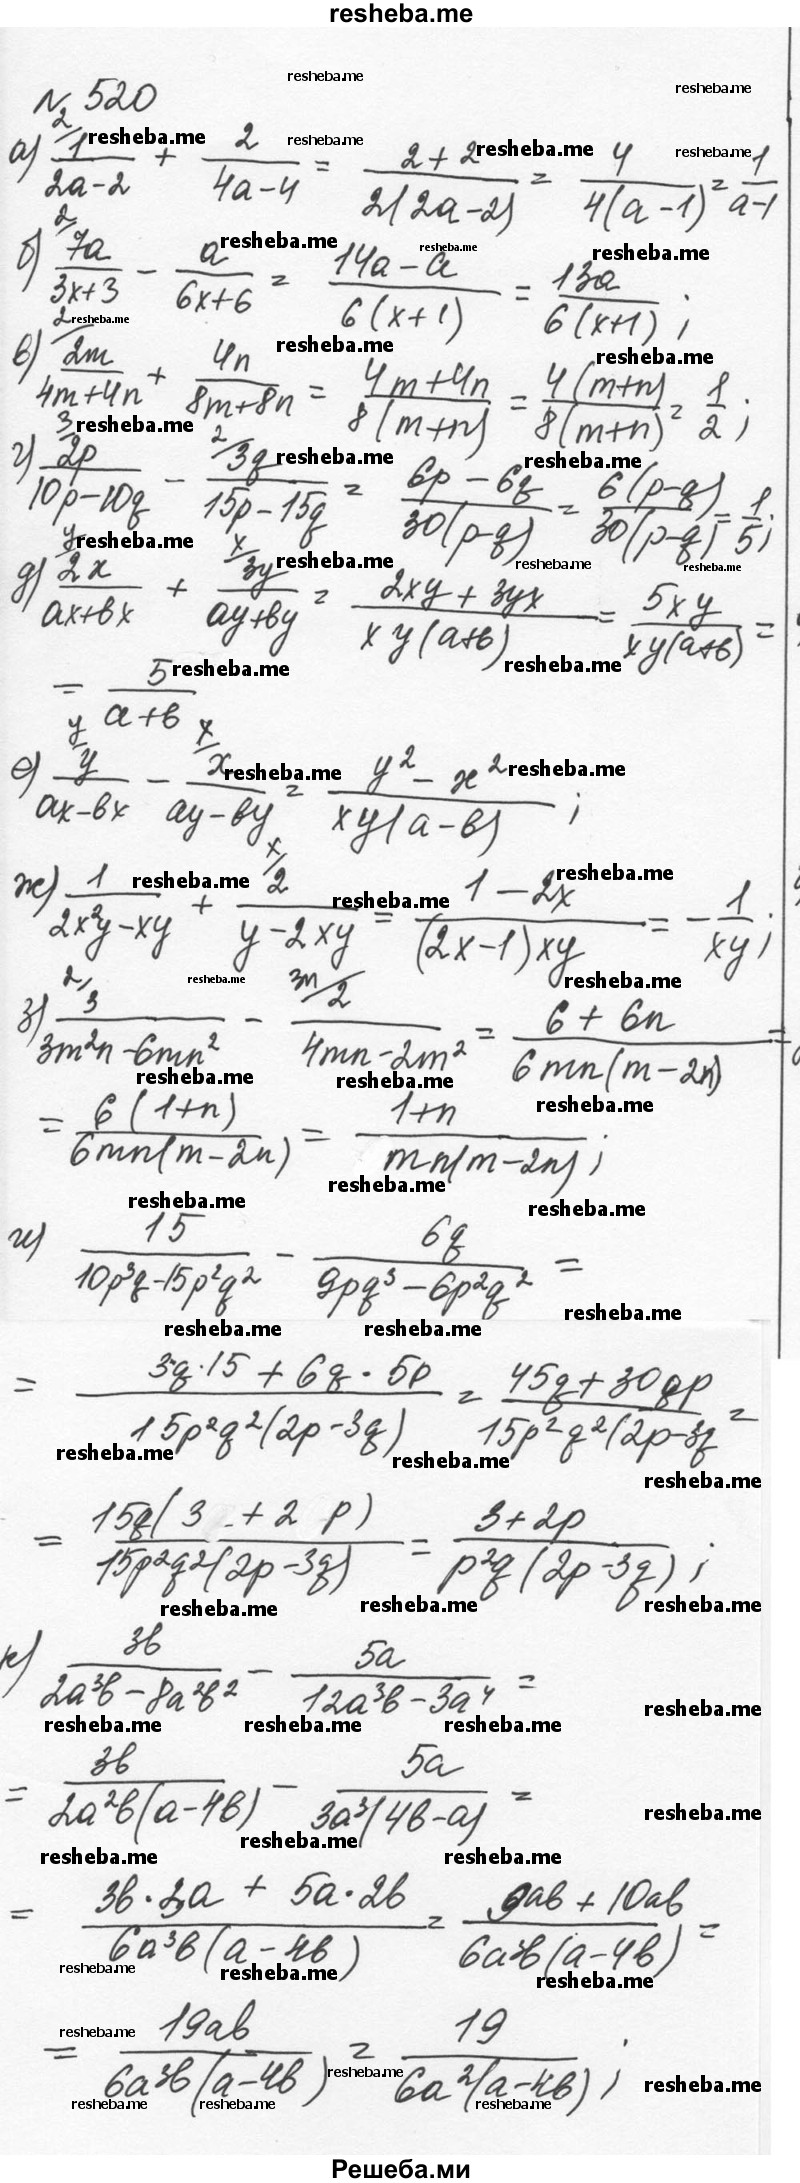 resheba.me
№ 520
а) 2/ 1/(2a-2) + 2/(4a-4) = (2+2)/(2(2a-2)) = 4/(4(a-1)) = 1/(a-1)
б) 2/ 7a/(3x+3) - a/(6x+6) = (14a-a)/(6(x+1)) = 13a/(6(x+1));
в) 2/ 2m/(4m+4n) + 4n/(8m+8n) = (4m+4n)/(8(m+n)) = 4(m+n)/(8(m+n)) = 1/2;
г) 3/ 2p/(10p-10q) - 2/ 3q/(15p-15q) = (6p-6q)/(30(p-q)) = 6(p-q)/(30(p-q)) = 1/5;
д) y/ 2x/(ax+bx) + x/ 3y/(ay+by) = (2xy+3yx)/(xy(a+b)) = 5xy/(xy(a+b)) =
= 5/(a+b)
е) y/ y/(ax-bx) - x/ x/(ay-by) = (y²-x²)/(xy(a-b));
ж) 1/(2x²y-xy) + x/ 2/(y-2xy) = (1-2x)/((2x-1)xy) = -1/(xy);
з) 2/ 3/(3m²n-6mn²) - 3n/ 2/(4mn-2m²) = (6+6n)/(6mn(m-2n)) =
= 6(1+n)/(6mn(m-2n)) = (1+n)/(mn(m-2n));
и) 15/(10p³q-15p²q²) - 6q/(9pq³-6p²q²) =
= (3q·15+6q·5p)/(15p²q²(2p-3q)) = (45q+30qp)/(15p²q²(2p-3q) =
= 15q(3+2p)/(15p²q²(2p-3q)) = (3+2p)/(p²q(2p-3q));
к) 3b/(2a³b-8a²b²) - 5a/(12a³b-3a⁴) =
= 3b/(2a²b(a-4b)) - 5a/(3a³(4b-a)) =
= (3b·3a+5a·2b)/(6a³b(a-4b)) = (9ab+10ab)/(6a³b(a-4b)) =
= 19ab/(6a³b(a-4b)) = 19/(6a²(a-4b));
Решеба.ми